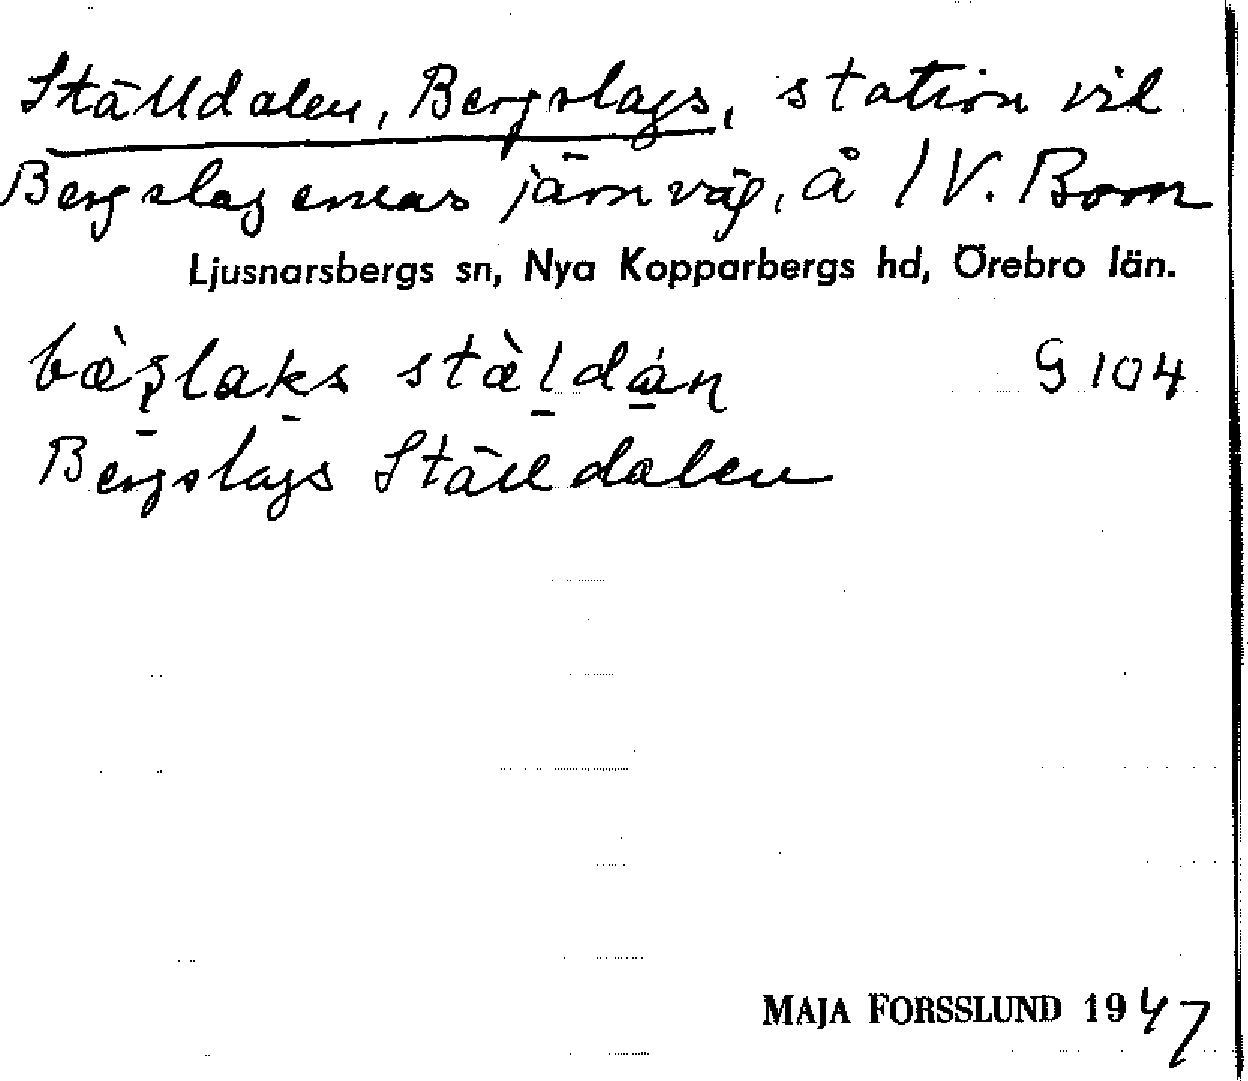 Ställdalen, Bergslags, station vid
Bergslagernas järnväg, å 1 V. Born
Ljusnarsbergs sn, Nya Kopparbergs hd, Örebro län.
bæ̀ʂlaks stæ̀ldán G 104
Bergslags Ställdalen
MAJA FORSSLUND 1947